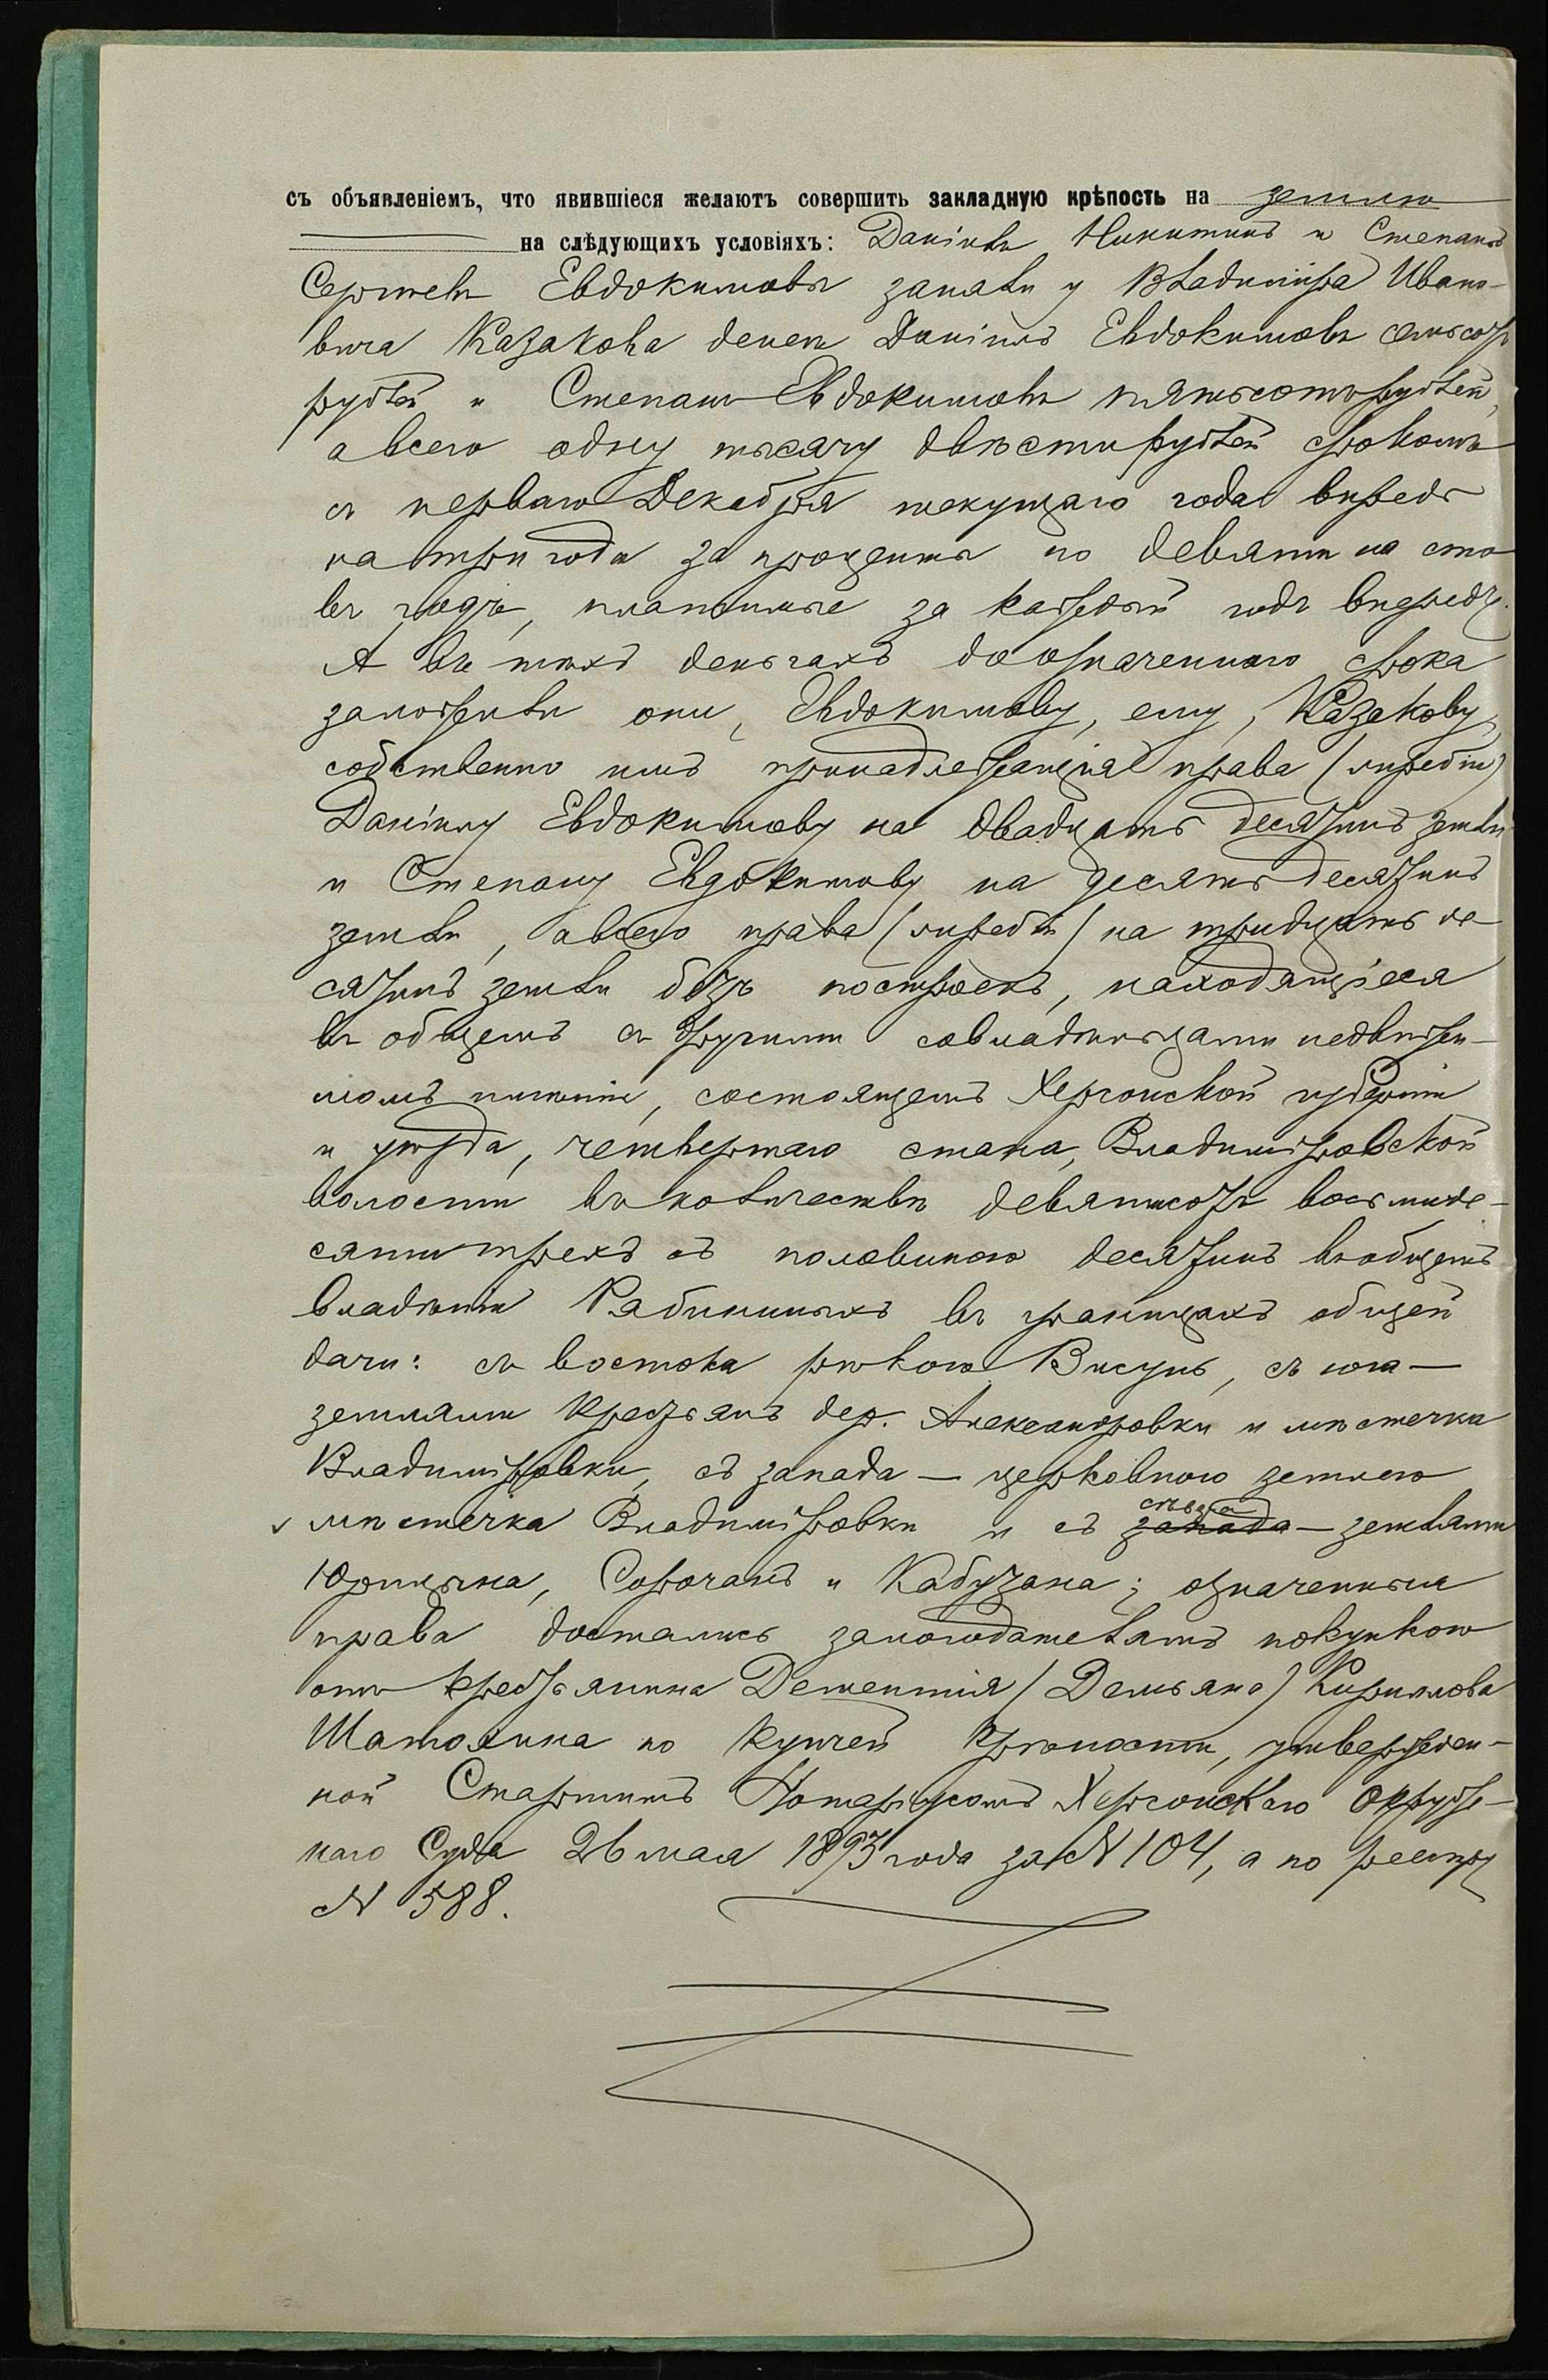 съ объявленіемъ, что явившіеся желаютъ совершить закладную крѣпость на землю
на слѣдующихъ условіяхъ: Даніилъ Никитинъ и Степанъ
Сергѣевъ Евдокимовы заняли у Владиміра Ивано-
вича Казакова денегъ Даніилъ Евдокимовъ семьсотъ
рублей и Степанъ Евдокимовъ пятьсотъ рублей,
а всего одну тысячу двѣсти рублей срокомъ
съ перваго Декабря текущаго года впредь
на три года за проценты по девяти на сто
въ годъ, платимые за каждый годъ впередъ.
А въ тѣхъ деньгахъ до означеннаго срока
заложили они, Евдокимовы, ему, Казакову,
собственно имъ принадлежащія права (жребіи)
Даніилу Евдокимову на двадцать десятинъ земли
и Степану Евдокимову на десять десятинъ
земли, а всего права (жребіи) на тридцать де-
сятинъ земли безъ построекъ, находящіеся
въ общемъ съ другими совладѣльцами недвижи-
момъ имѣніи, состоящемъ Херсонской губерніи
и уѣзда, четвертаго стана, Владиміровской
волости въ количествѣ девятисотъ восьмиде-
сяти трехъ съ половиною десятинъ въ общемъ
владѣніи Рабининыхъ въ границахъ общей
дачи: съ востока рѣкою Висунь, съ юга —
землями крестьянъ дер. Александровки и мѣстечка
Владиміровки, съ запада — церковною землею
мѣстечка Владиміровки и съ сѣвера запада — землями
Юрицына, Сорочанъ и Кабузана; означенныя
права достались залогодателямъ покупкою
отъ крестьянина Дементія (Демьяна) Кирилова
Шатохина по купчей крѣпости, утвержден-
ной Старшимъ Нотаріусомъ Херсонскаго Окруж-
наго Суда 26 мая 1893 года за № 104, а по реестру
№ 588.